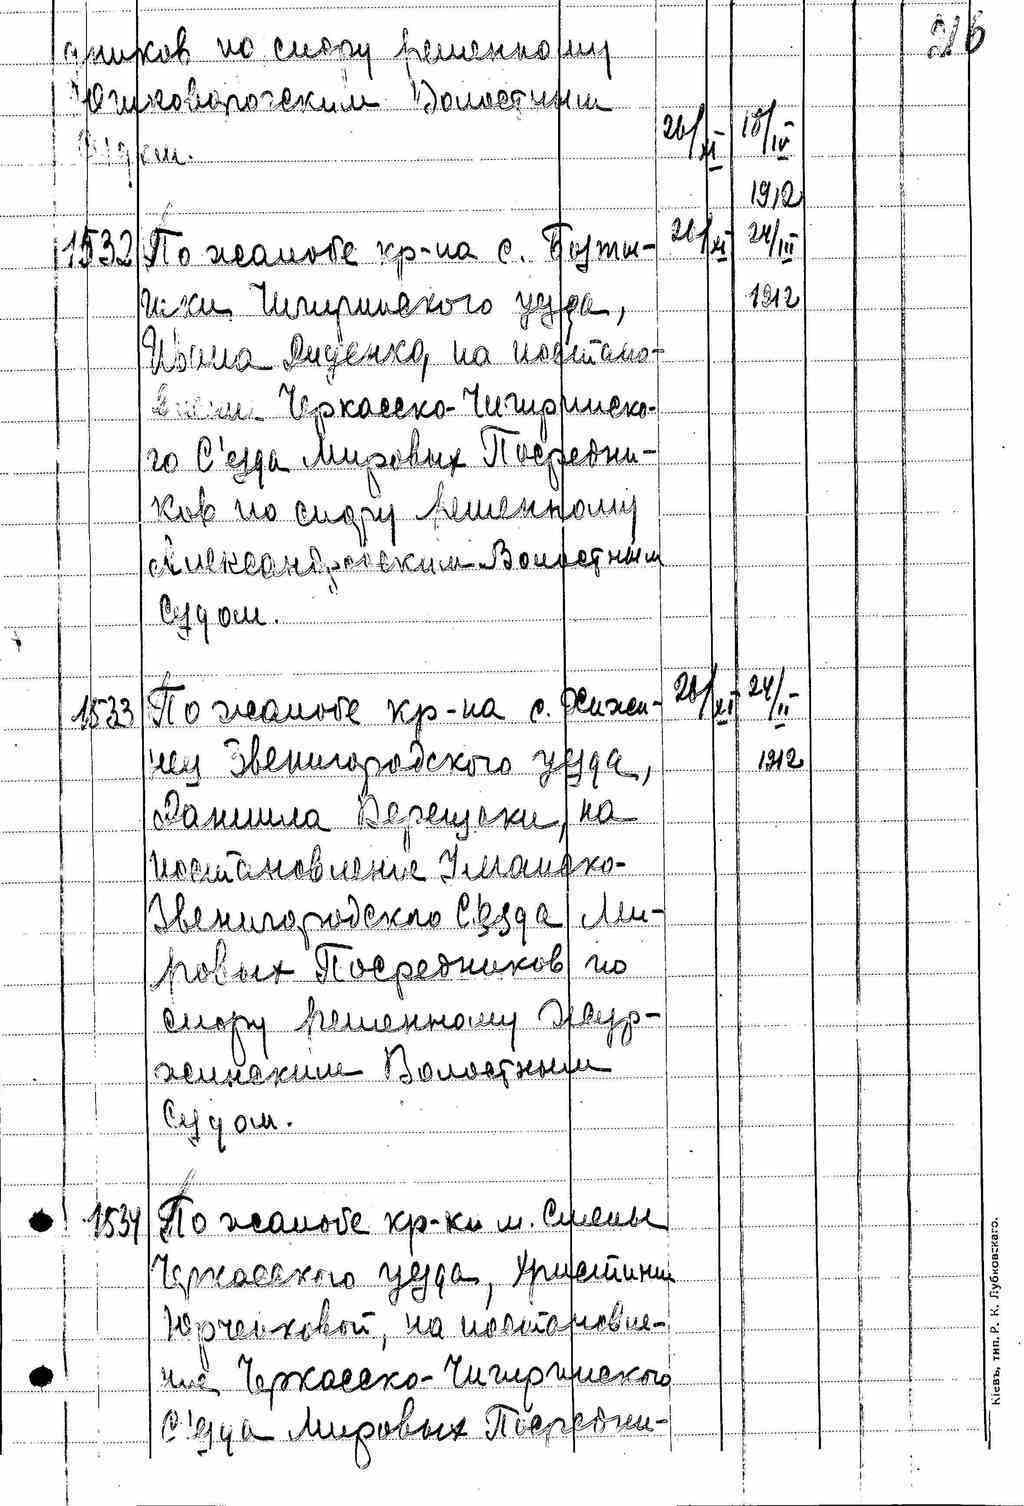 216
дников по спору решенному
Волостным
26/XI 18/IV
1912
1532 По жалобе кр-на с. 26/XI 24/III
Чигиринского уезда, 1912
Ивана на постано-
Черкасско-Чигиринско-
го С'езда Мировых Посредни-
ков по спору решенному
Александровским Волостным
Судом.
1533 По жалобе кр-на с. 26/XI 24/II
Звенигородского уезда, 1912
Даниила Верещаки, на
постановление Уманско-
Звенигородского С'езда Ми-
ровых Посредников по
спору решенному
Волостным
Судом.
1534 По жалобе кр-ки м. Смелы
Черкасского уезда, Христины
Юрченковой, на постановле-
ние Черкасско-Чигиринского
С'езда Мировых Посредни-
Кіевъ, тип. Р. К. Лубковскаго.